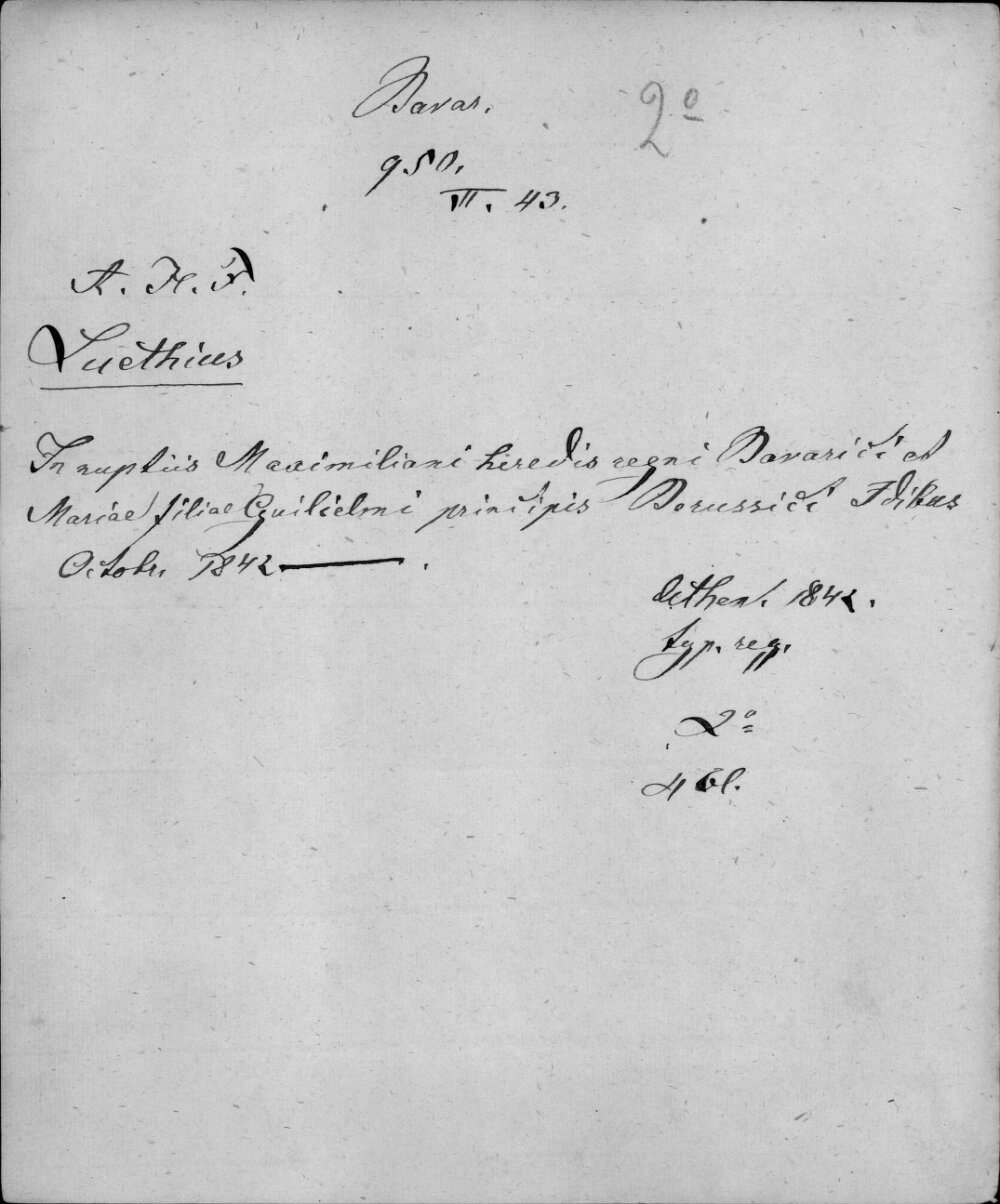 Bavar. 2º
950.
VII. 43.
A. H. F.
Luethius
In nuptiis Maximiliani heredis regni Bavarici et
Mariae filiae Guilielmi principis Borussici Idibus
Octobr. 1842 — .
Athen. 1842.
typ. reg.
2º
4 Bl.